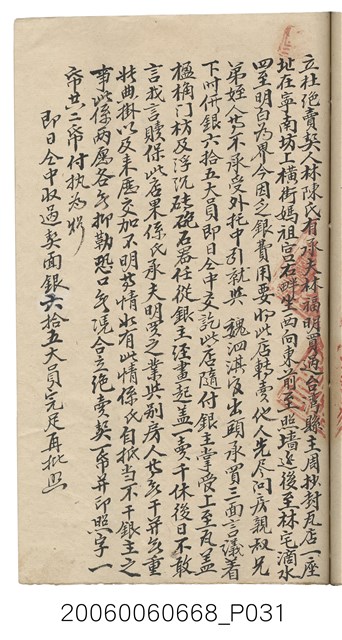 立杜絕賣契人林陳氏有承夫林福明買過台灣縣主周抄封瓦店一座
址在寧南坊上橫街媽祖宮右畔坐西向東前至照墻後至林宅滴水
四至明白為界今因乏銀費用要將此店轉賣他人先盡問房親叔兄
弟姪人等不承受外托中引就與魏泗淇官出頭承買三面言議着
下時價銀六拾五大員即日仝中交訖此店隨付銀主掌管上至瓦蓋
楹桷門枋及浮沉磚石器任從銀主往畫起蓋一賣千休後日不敢
言找言贖保此店果係氏承夫明買之業與別房人等無干并無重
典掛以及來歷交加不明等情如有此情係氏自抵當不干銀主之
事此係兩愿各無抑勒恐口無憑合立絕賣契一帋并印照字一
帋共二帋付執為炤
即日仝中收過契面銀六拾五大員完足再批照
20060060668_P031